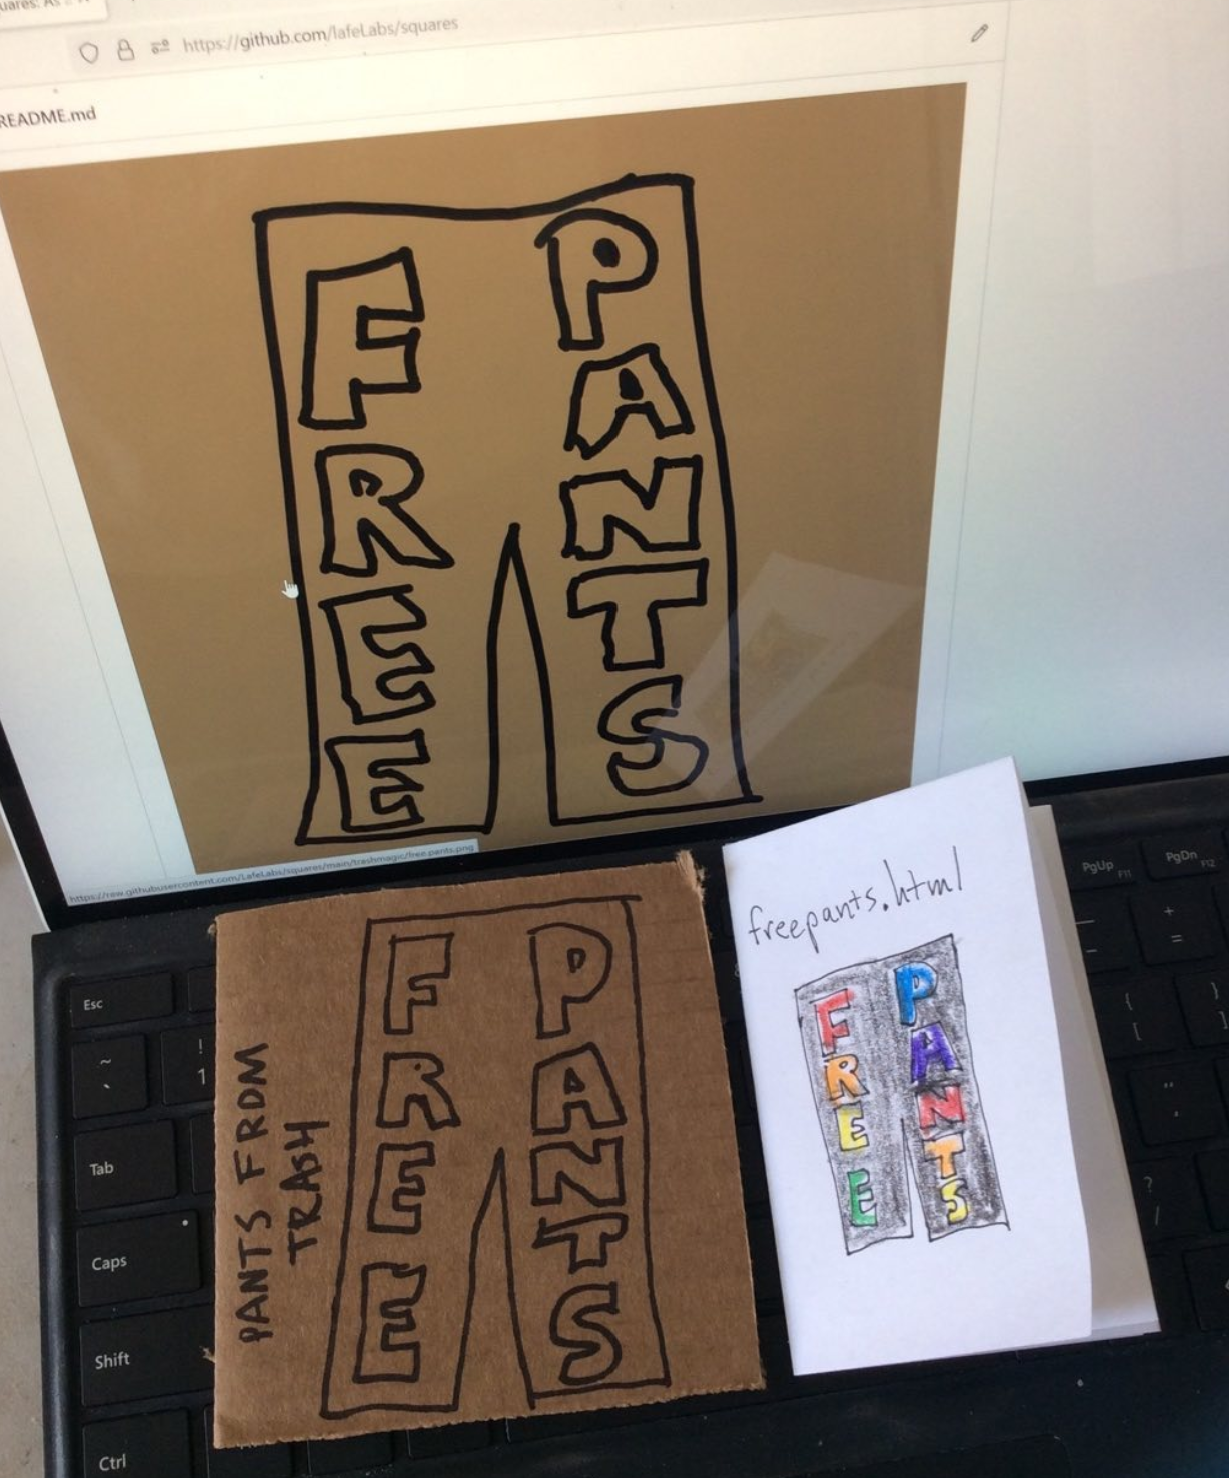 https://github.com/lafeLabs/squares
README.md
FREE
PANTS
https://raw.githubusercontent.com/LafeLabs/squares/main/trashmagic/free.pants.png
PANTS FROM
TRASH
FREE
PANTS
freepants.html
FREE
PANTS
Esc
~
`
!
1
Tab
Caps
Shift
Ctrl
PgUp
F11
PgDn
F12
+
=
{
[
?
/